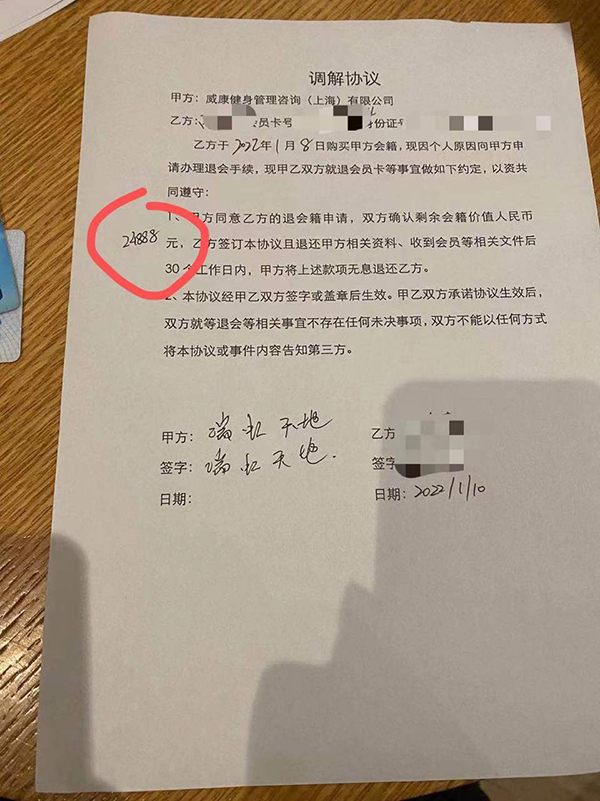 调解协议
甲方：威康健身管理咨询（上海）有限公司
乙方： 员卡号 份证号
乙方于2022年1月8日购买甲方会籍，现因个人原因向甲方申
请办理退会手续，现甲乙双方就退会员卡等事宜做如下约定，以资共
同遵守：
1、甲方同意乙方的退会籍申请，双方确认剩余会籍价值人民币
24888
元，乙方签订本协议且退还甲方相关资料、收到会员等相关文件后
30个工作日内，甲方将上述款项无息退还乙方。
2、本协议经甲乙双方签字或盖章后生效。甲乙双方承诺协议生效后，
双方就等退会等相关事宜不存在任何未决事项，双方不能以任何方式
将本协议或事件内容告知第三方。
甲方：瑞虹天地 乙方
签字：瑞虹天地. 签字
日期： 日期：2022/1/10